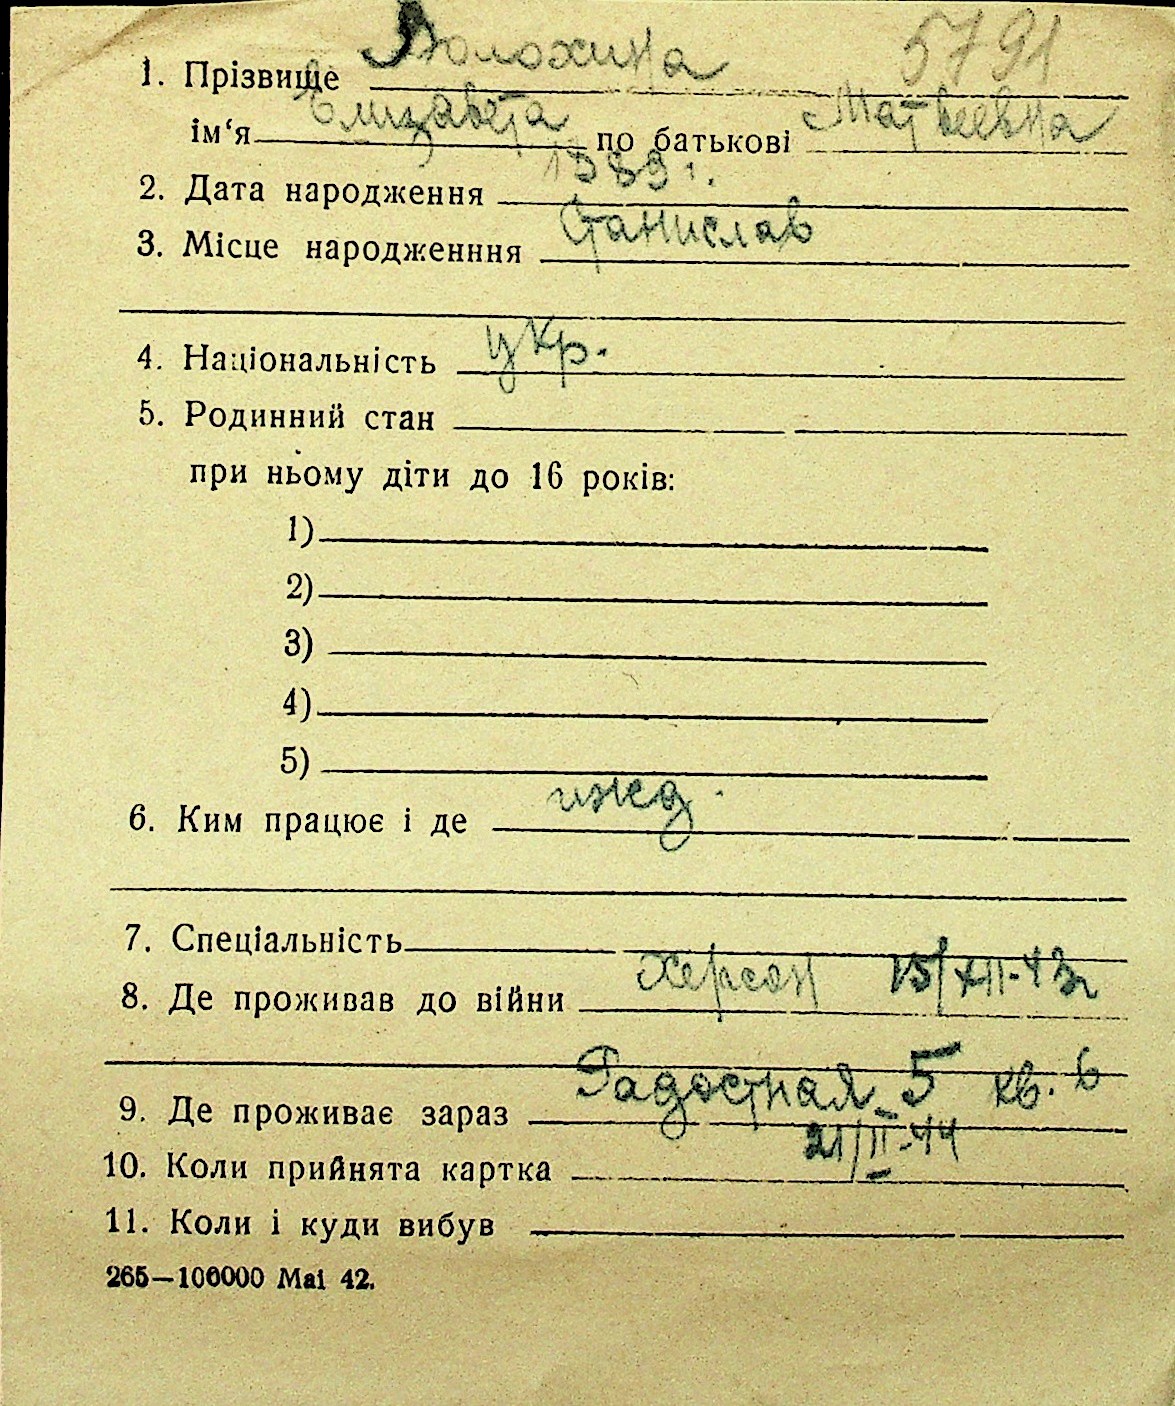 5791
1. Прізвище Волохина
ім‘я Елизавета по батькові Матвеевна
2. Дата народження 1889 г.
3. Місце народженння Станислав
4. Національність укр.
5. Родинний стан
при ньому діти до 16 років:
1)
2)
3)
4)
5)
6. Ким працює і де ижд.
7. Спеціальність
8. Де проживав до війни Херсон 15/XII-43
9. Де проживає зараз Радостная 5 кв. 6
10. Коли прийнята картка 21/II-44
11. Коли і куди вибув
265—100000 Mai 42.